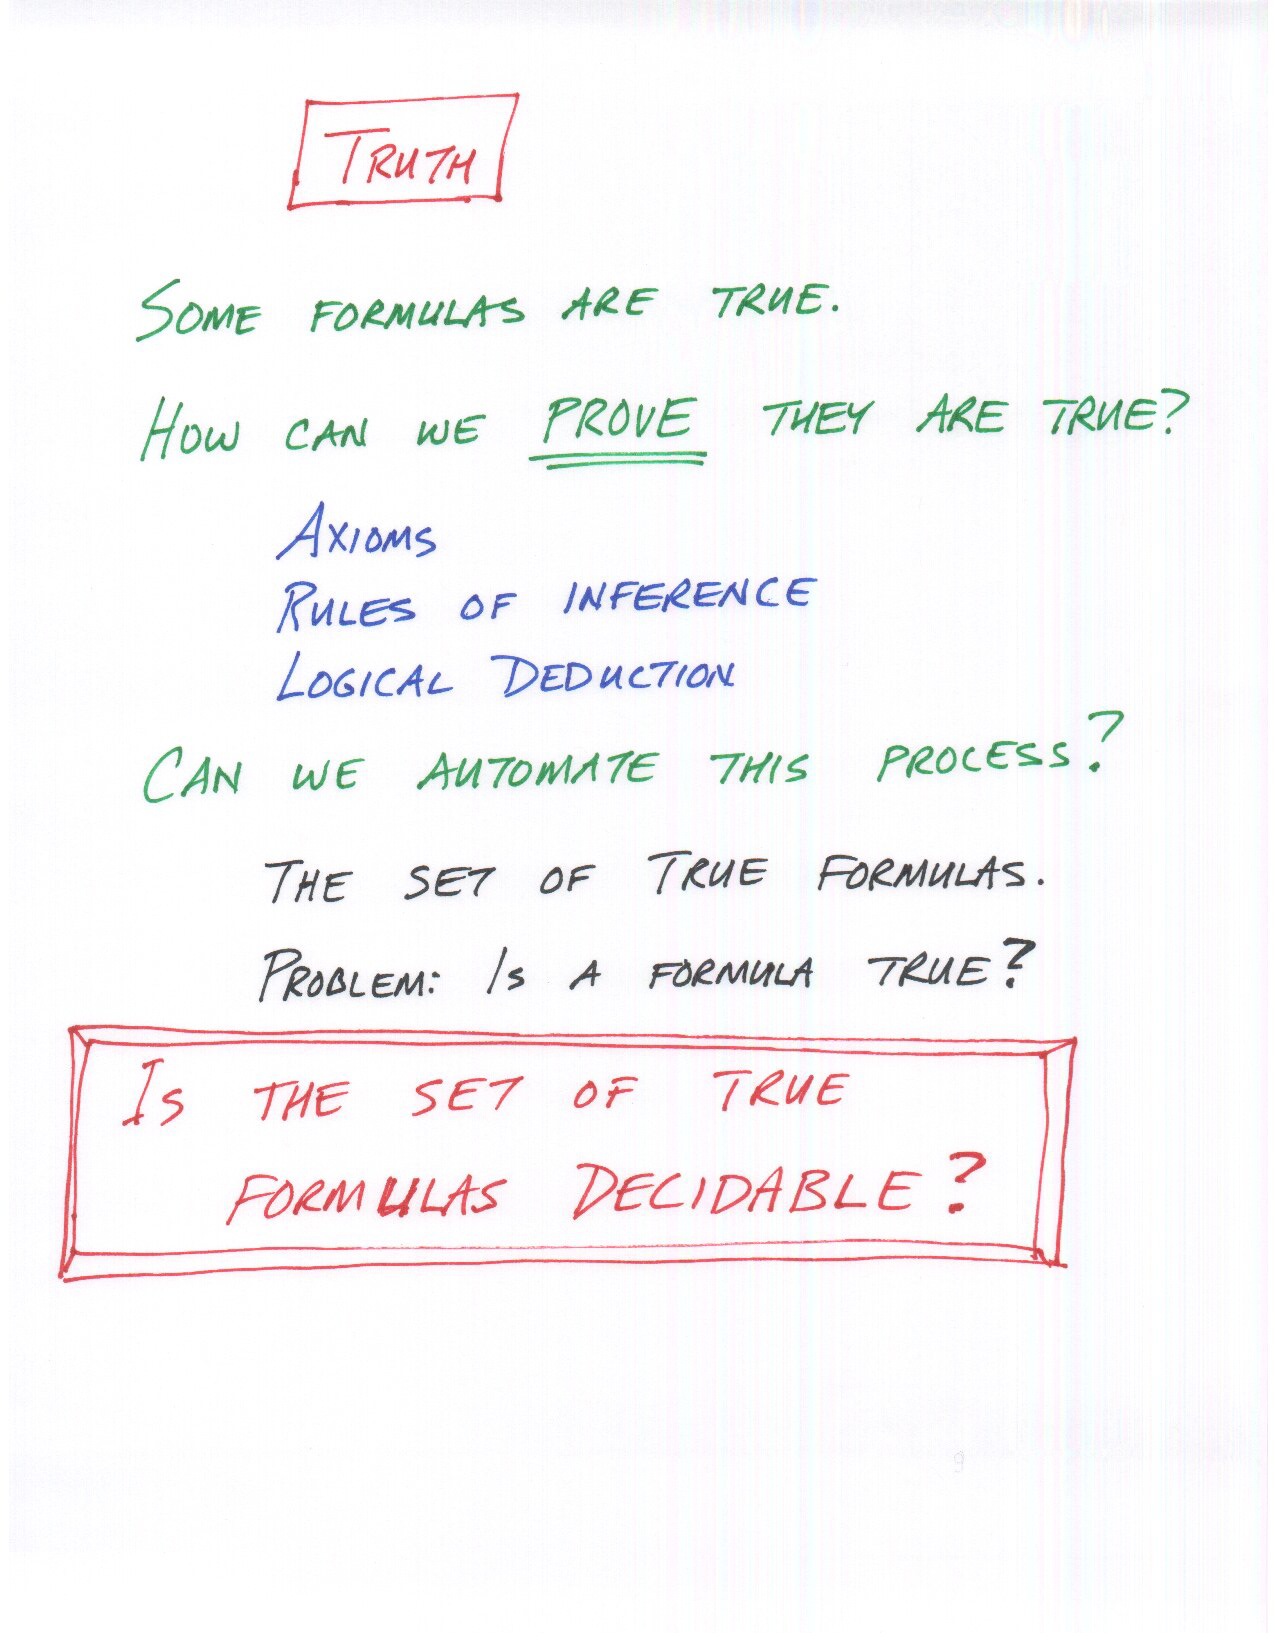 TRUTH
SOME FORMULAS ARE TRUE.
HOW CAN WE PROVE THEY ARE TRUE?
AXIOMS
RULES OF INFERENCE
LOGICAL DEDUCTION
CAN WE AUTOMATE THIS PROCESS?
THE SET OF TRUE FORMULAS.
PROBLEM: IS A FORMULA TRUE?
IS THE SET OF TRUE
FORMULAS DECIDABLE?